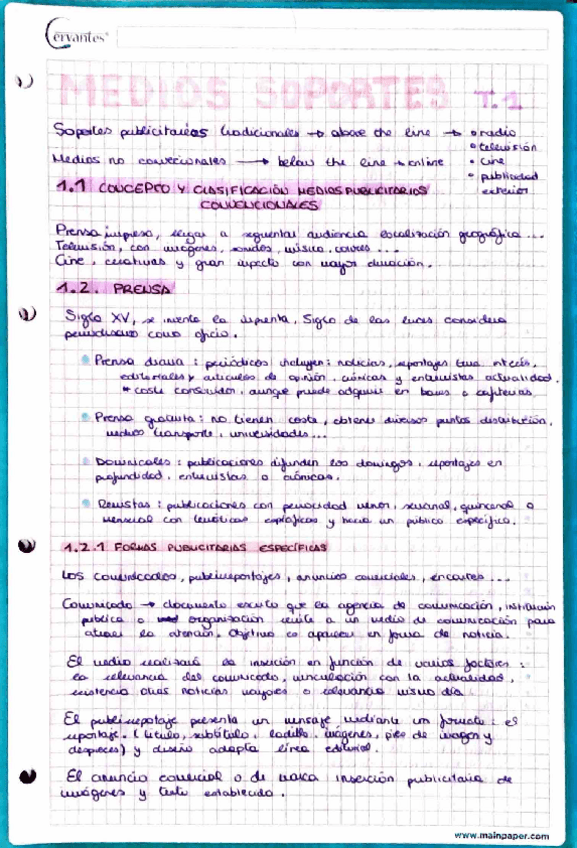 Cervantes
MEDIOS SOPORTES T.1
Soportes publicitarios tradicionales → above the line → • radio
• televisión
Medios no convecionales → below the line + online • cine
• publicidad
exterior
1.1 CONCEPTO Y CLASIFICACIÓN MEDIOS PUBLICITARIOS
CONVENCIONALES
Prensa impresa, llegar a segmentar audiencia localización geográfica ...
Televisión, con imágenes, sonidos, música, colores ...
Cine, creativas y gran impacto con mayor duración.
1.2. PRENSA
Siglo XV, se inventa la imprenta, Siglo de las luces considera
periodismo como oficio.
• Prensa diaria : periódicos incluyen : noticias, reportajes interés,
editoriales y artículos de opinión, crónicas y entrevistas actualidad.
* coste consumidor, aunque puede adquirir en bares o cafeterías
• Prensa gratuita : no tienen coste, obtener diversos puntos distribución,
medios transporte, universidades ...
• Dominicales : publicaciones difunden los domingos, reportajes en
profundidad, entrevistas o crónicas.
• Revistas : publicaciones con periocidad menor, semanal, quincenal o
mensual con temáticas específicas y hacia un público específico.
1.2.1 FORMAS PUBLICITARIAS ESPECÍFICAS
Los comunicados, publirreportajes, anuncios comerciales, encartes ...
Comunicado → documento escrito que la agencia de comunicación, institución
pública o organización remite a un medio de comunicación para
atraer la atención. Objetivo es aparecer en forma de noticia.
El medio realizará la inserción en función de varios factores :
la relevancia del comunicado, vinculación con la actualidad,
existencia otras noticias mayores o relevancia mismo día.
El publirreportaje presenta un mensaje mediante un formato : el
reportaje. (título, subtítulo, ladillo, imágenes, pies de imagen y
despieces) y diseño adapta línea editorial.
El anuncio comercial o de marca inserción publicitaria de
imágenes y texto establecido.
www.mainpaper.com